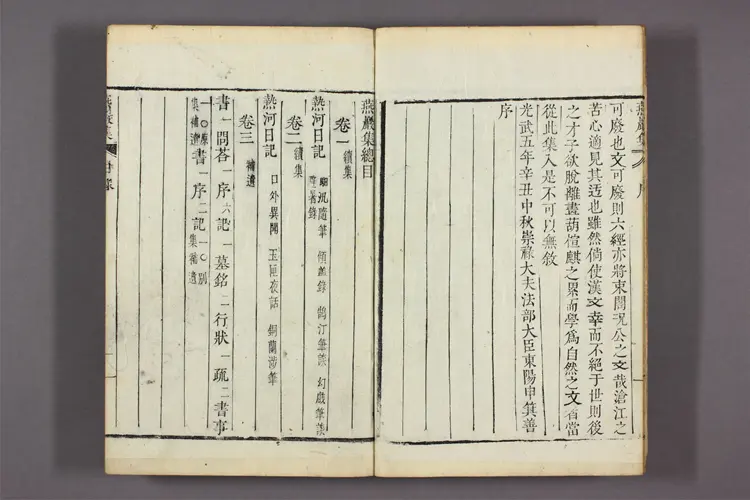 燕巖集 序
可廢也文可廢則六經亦將束閣況公之文哉滄江之
苦心適見其迃也雖然倘使漢文幸而不絕于世則後
之才子欲脫離畫葫楦麒之累而學爲自然之文者當
從此集入是不可以無敘
光武五年辛丑中秋崇祿大夫法部大臣東陽申箕善
序
燕巖集總目
卷一 續集
熱河日記 隨筆 傾蓋錄 鵠汀筆談 幻戲筆談
避暑錄
卷二 續集
熱河日記 口外異聞 玉匣夜話 銅蘭涉筆
卷三 補遺
書一問答一序六記一墓銘二行狀一疏二書事
一〇原集補遺書一序二記一〇別集補遺
燕巖集